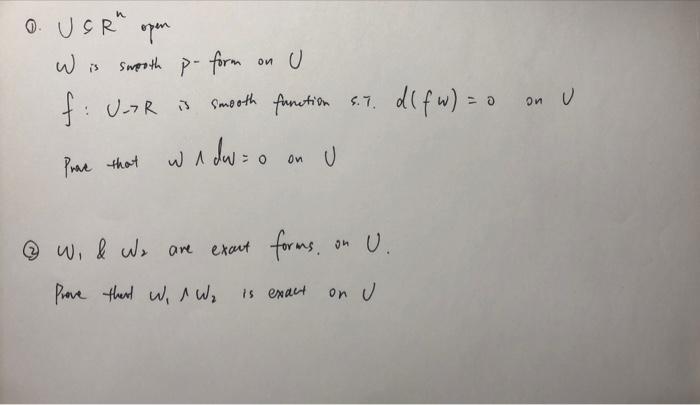 ①. U ⊆ Rⁿ open
W is smooth p-form on U
f: U→R is smooth function s.t. d(fw) = 0 on U
Prove that w ∧ dw = 0 on U
② W₁ & W₂ are exact forms. on U.
Prove that W₁ ∧ W₂ is exact on U